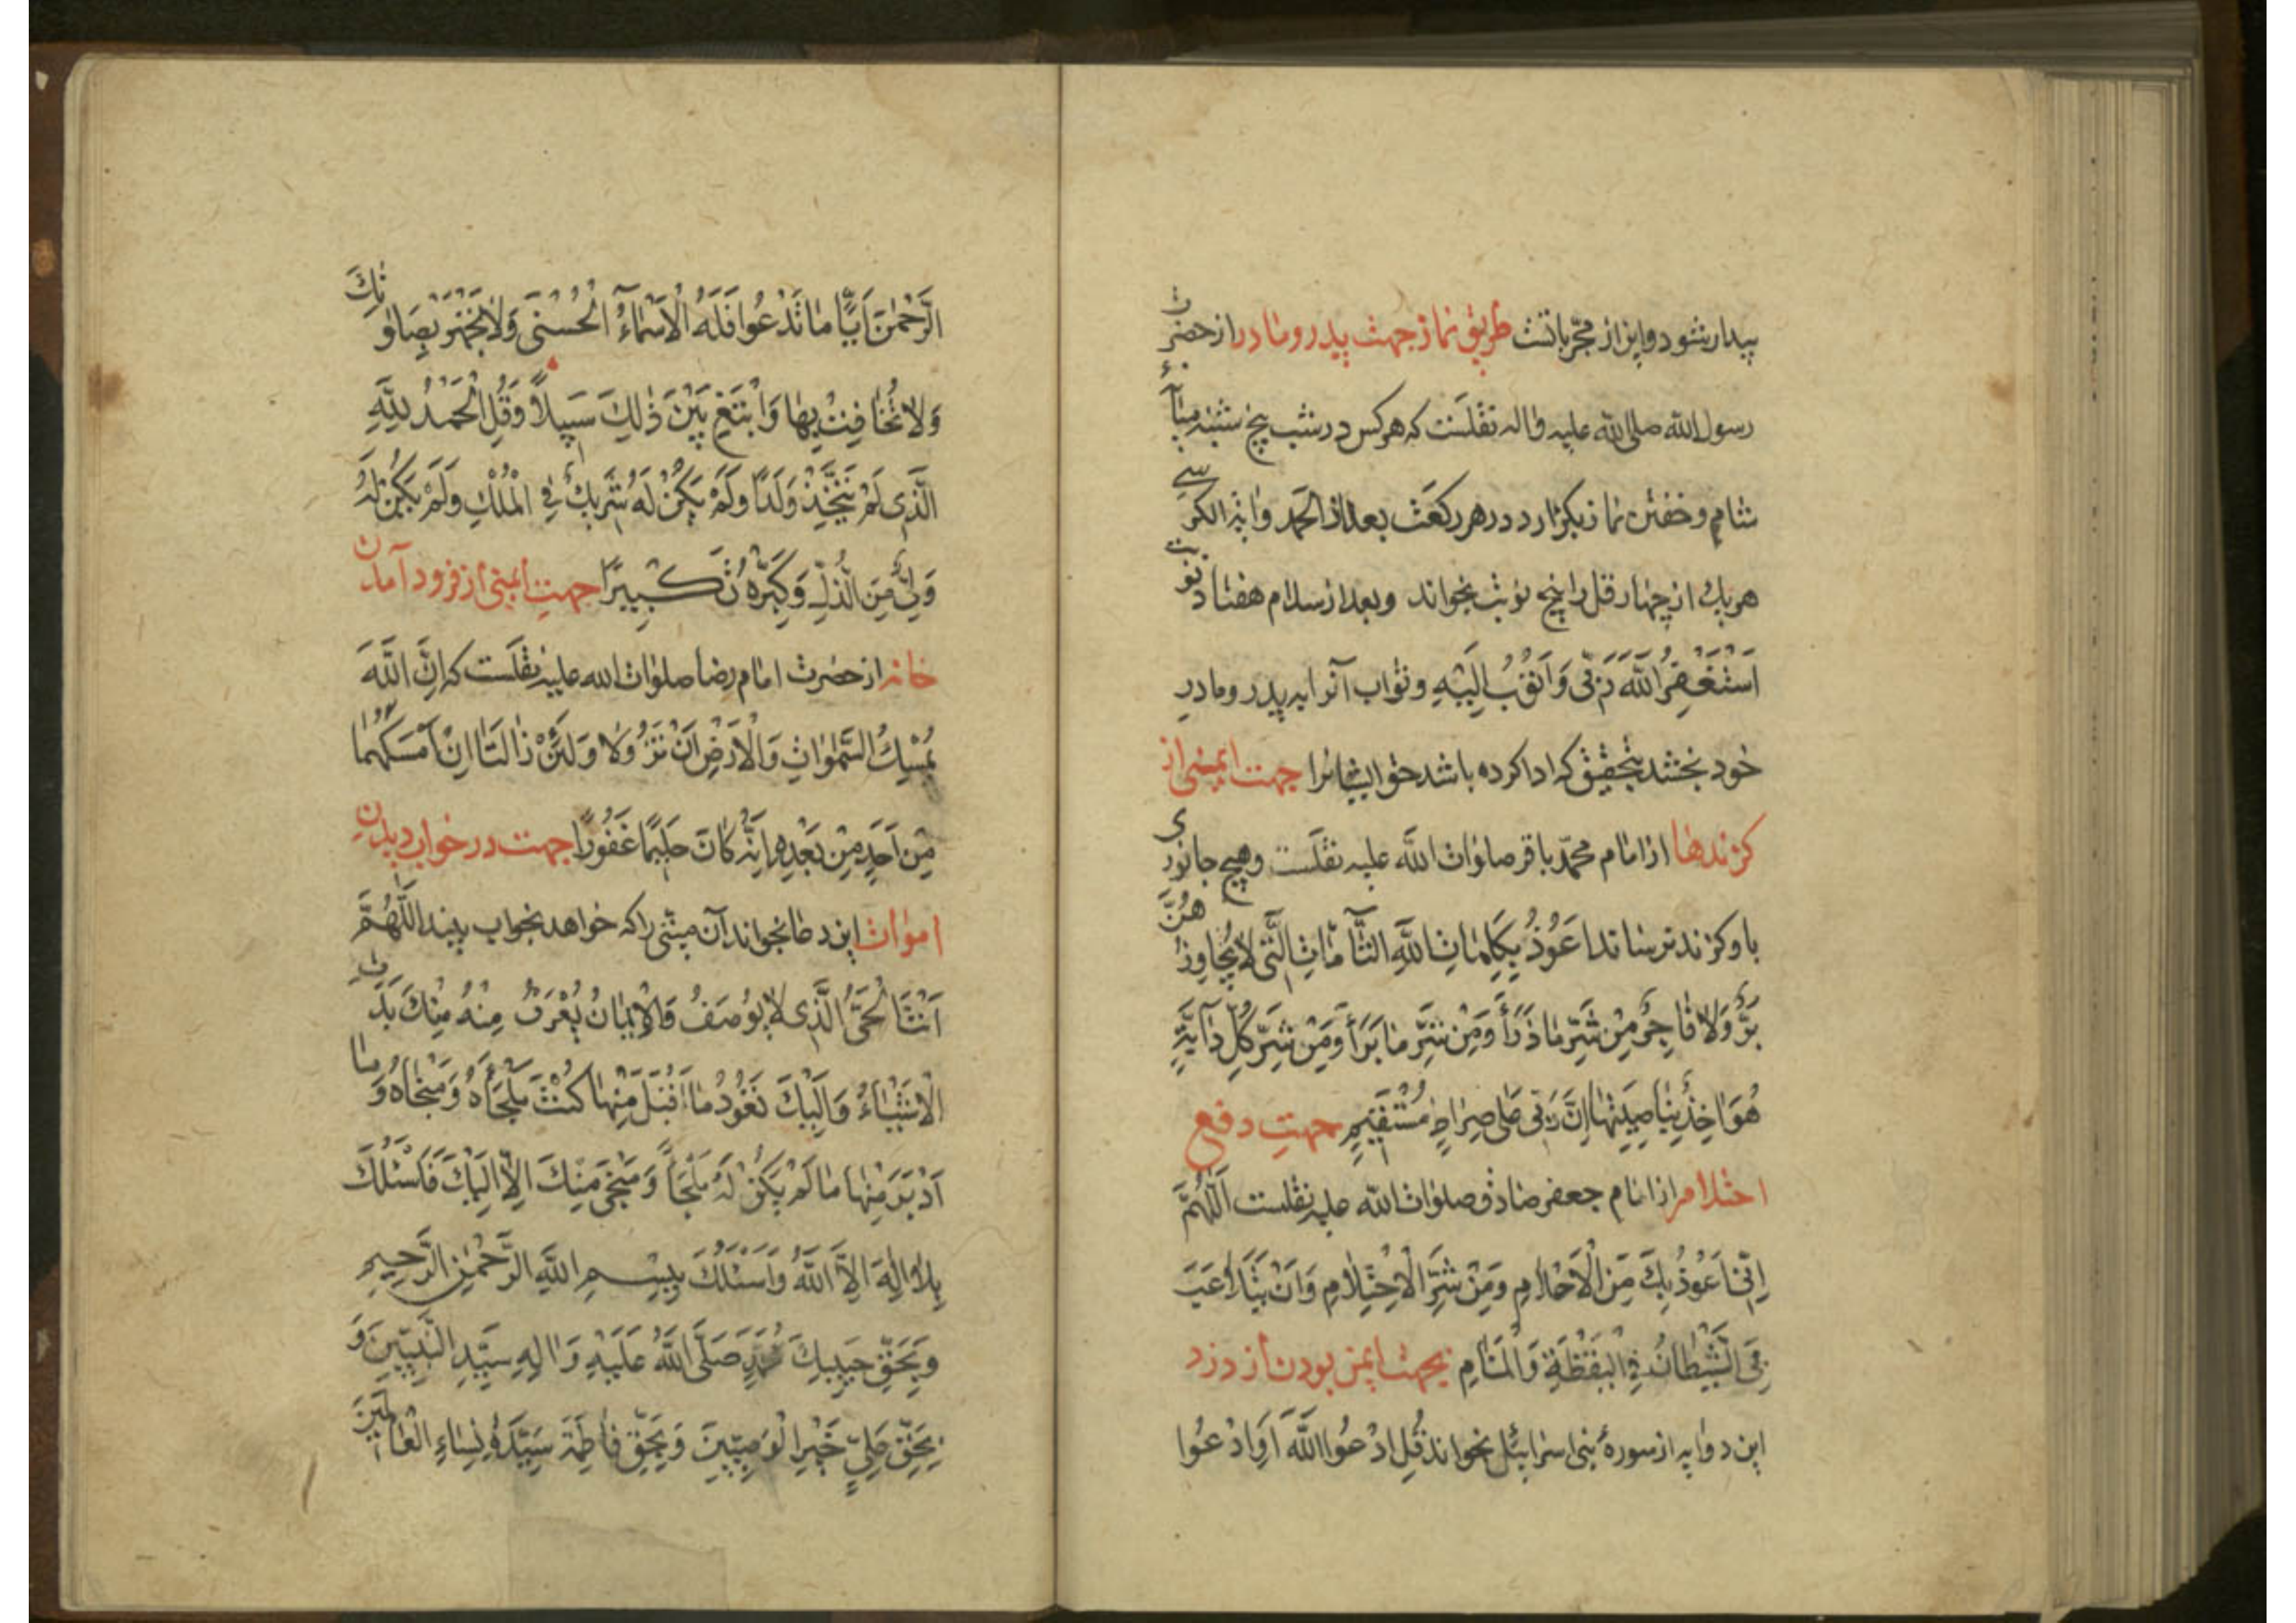 بیدار شود و این از مجرّباتست طریق نماز جهت پدر و مادر از حضرت
رسول الله صلی الله علیه و اله نقلست که هر کس در شب پنج شنبه میانٔ
شام و خفتن نماز بکزارد در هر رکعت بعد از الحمد و ایة الکرسے
هر یک از چهار قل را پنج نوبت بخواند و بعد از سلام هفتاد نوبت
اَسْتَغْفِرُ اللّٰهَ رَبّی وَ اَتُوْبُ اِلَیْهِ و ثواب آنرا به پدر و مادر
خود بخشد بتحقیق که ادا کرده باشد حق ایشانرا جهت ایمنی از
کزندها از امام محمّد باقر صلوات اللّه علیه نقلست و هیچ جانوری
باو کزند نرساند اَعُوْذُ بِکَلِمَاتِ اللّٰهِ التَّآمَّاتِ الَّتی لَا یُجَاوِزُهُنَّ
بَرٌّ وَلَا فَاجِرٌ مِنْ شَرِّ مَا ذَرَأَ وَمِنْ شَرِّ مَا بَرَأَ وَمِنْ شَرِّ کُلِّ دَآبَّةٍ
هُوَ اٰخِذٌ بِنَاصِیَتِهَا اِنَّ رَبّی عَلی صِرَاطٍ مُسْتَقِیْمٍ جهتِ دفع
احتلام از امام جعفر صادق صلوات اللّه علیه نقلست اَللّٰهُمَّ
اِنّی اَعُوْذُ بِکَ مِنَ الْاَحْلَامِ وَمِنْ شَرِّ الْاِحْتِلَامِ وَاَنْ یَتَلَاعَبَ
بِیَ الشَّیْطَانُ فِی الْیَقْظَةِ وَالْمَنَامِ بجهت ایمن بودن از دزد
این دو ایه از سورهٔ بنی اسرائیل بخواند قُلِ ادْعُوا اللّٰهَ اَوِ ادْعُوا
الرَّحْمٰنَ اَیًّا مَا تَدْعُوا فَلَهُ الْاَسْمَآءُ الْحُسْنَی وَلَا تَجْهَرْ بِصَلٰوتِکَ
وَلَا تُخَافِتْ بِهَا وَابْتَغِ بَیْنَ ذٰلِکَ سَبِیلًا وَقُلِ الْحَمْدُ لِلّٰهِ
الَّذِی لَمْ یَتَّخِذْ وَلَدًا وَلَمْ یَکُنْ لَهُ شَرِیکٌ فِی الْمُلْکِ وَلَمْ یَکُنْ لَهُ
وَلِیٌّ مِنَ الذُّلِّ وَکَبِّرْهُ تَکْبِیرًا جهتِ ایمنی از فرود آمدن
خانه از حضرت امام رضا صلوات الله علیه نقلست که اِنَّ اللّٰهَ
یُمْسِکُ السَّمٰوَاتِ وَالْاَرْضَ اَنْ تَزُوْلَا وَلَئِنْ زَالَتَا اِنْ اَمْسَکَهُمَا
مِنْ اَحَدٍ مِنْ بَعْدِهِ اِنَّهُ کَانَ حَلِیْمًا غَفُورًا جهت در خواب دیدن
اموات این دعا بخواند آن میّتی را که خواهد بخواب بیند اَللّٰهُمَّ
اَنْتَ الْحَیُّ الَّذِی لَا یُوصَفُ وَالْاِیْمَانُ یُعْرَفُ مِنْهُ مِنْکَ بَدَتِ
الْاَشْیَآءُ وَاِلَیْکَ تَعُوْدُ مَا اَقْبَلَ مِنْهَا کُنْتَ مَلْجَأَهُ وَمَنْجَاهُ وَمَا
اَدْبَرَ مِنْهَا مَا لَمْ یَکُنْ لَهُ مَلْجَأً وَمَنْجٰی مِنْکَ اِلَّا اِلَیْکَ فَاَسْئَلُکَ
بِلَا اِلٰهَ اِلَّا اللّٰهُ وَاَسْئَلُکَ بِبِسْمِ اللّٰهِ الرَّحْمٰنِ الرَّحِیمِ
وَبِحَقِّ حَبِیبِکَ مُحَمَّدٍ صَلَّی اللّٰهُ عَلَیْهِ وَاٰلِهِ سَیِّدِ النَّبِیِّینَ وَ
بِحَقِّ عَلِیٍّ خَیْرِ الْوَصِیِّینَ وَبِحَقِّ فَاطِمَةَ سَیِّدَةِ نِسَاءِ الْعَالَمِیْنَ